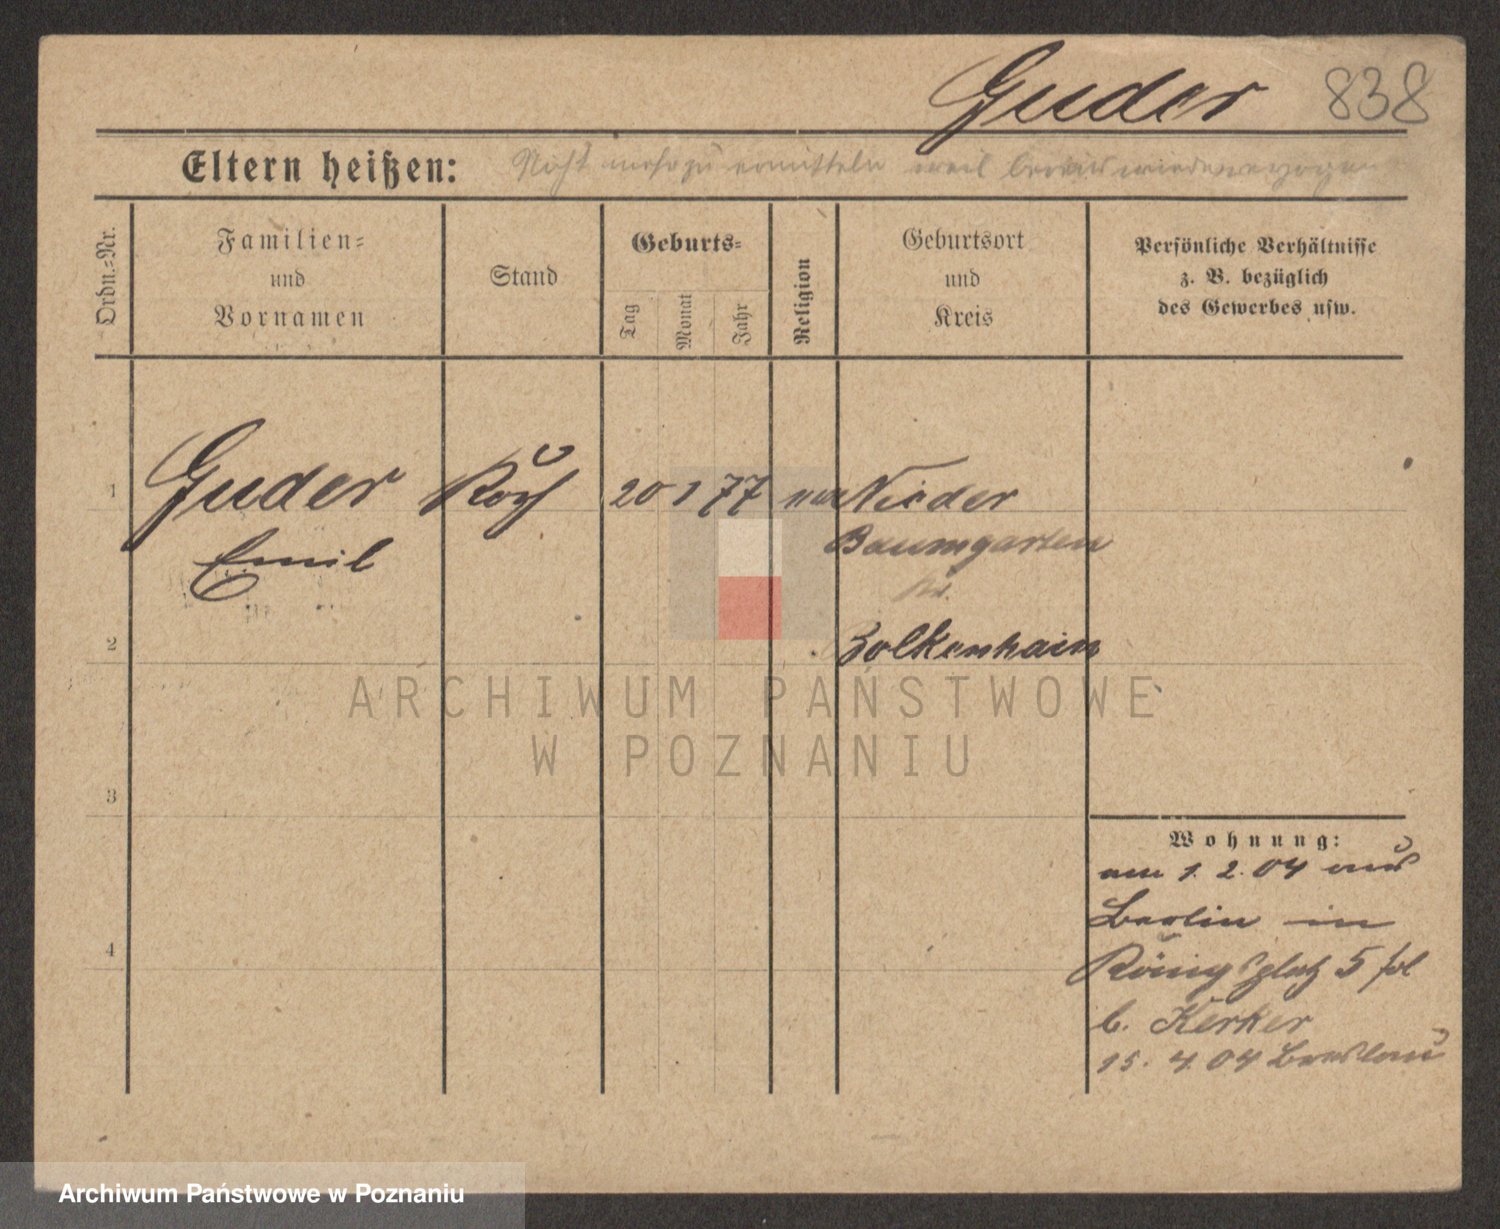 Guder 838
Eltern heißen: Nicht mehr zu ermitteln weil bereits wieder verzogen
Ordn.-Nr.
Familien-
und
Vornamen
Stand
Geburts-
Tag
Monat
Jahr
Religion
Geburtsort
und
Kreis
Persönliche Verhältnisse
z. B. bezüglich
des Gewerbes usw.
1 Guder Koch 20 1 77 Nieder
Emil Baumgarten
Kr.
2 Bolkenhain
ARCHIWUM PAŃSTWOWE
W POZNANIU
3
Wohnung:
am 1. 2. 04 aus
Berlin in
4 Königsplatz 5 
b. Kerker
15. 4. 04 Breslau
Archiwum Państwowe w Poznaniu